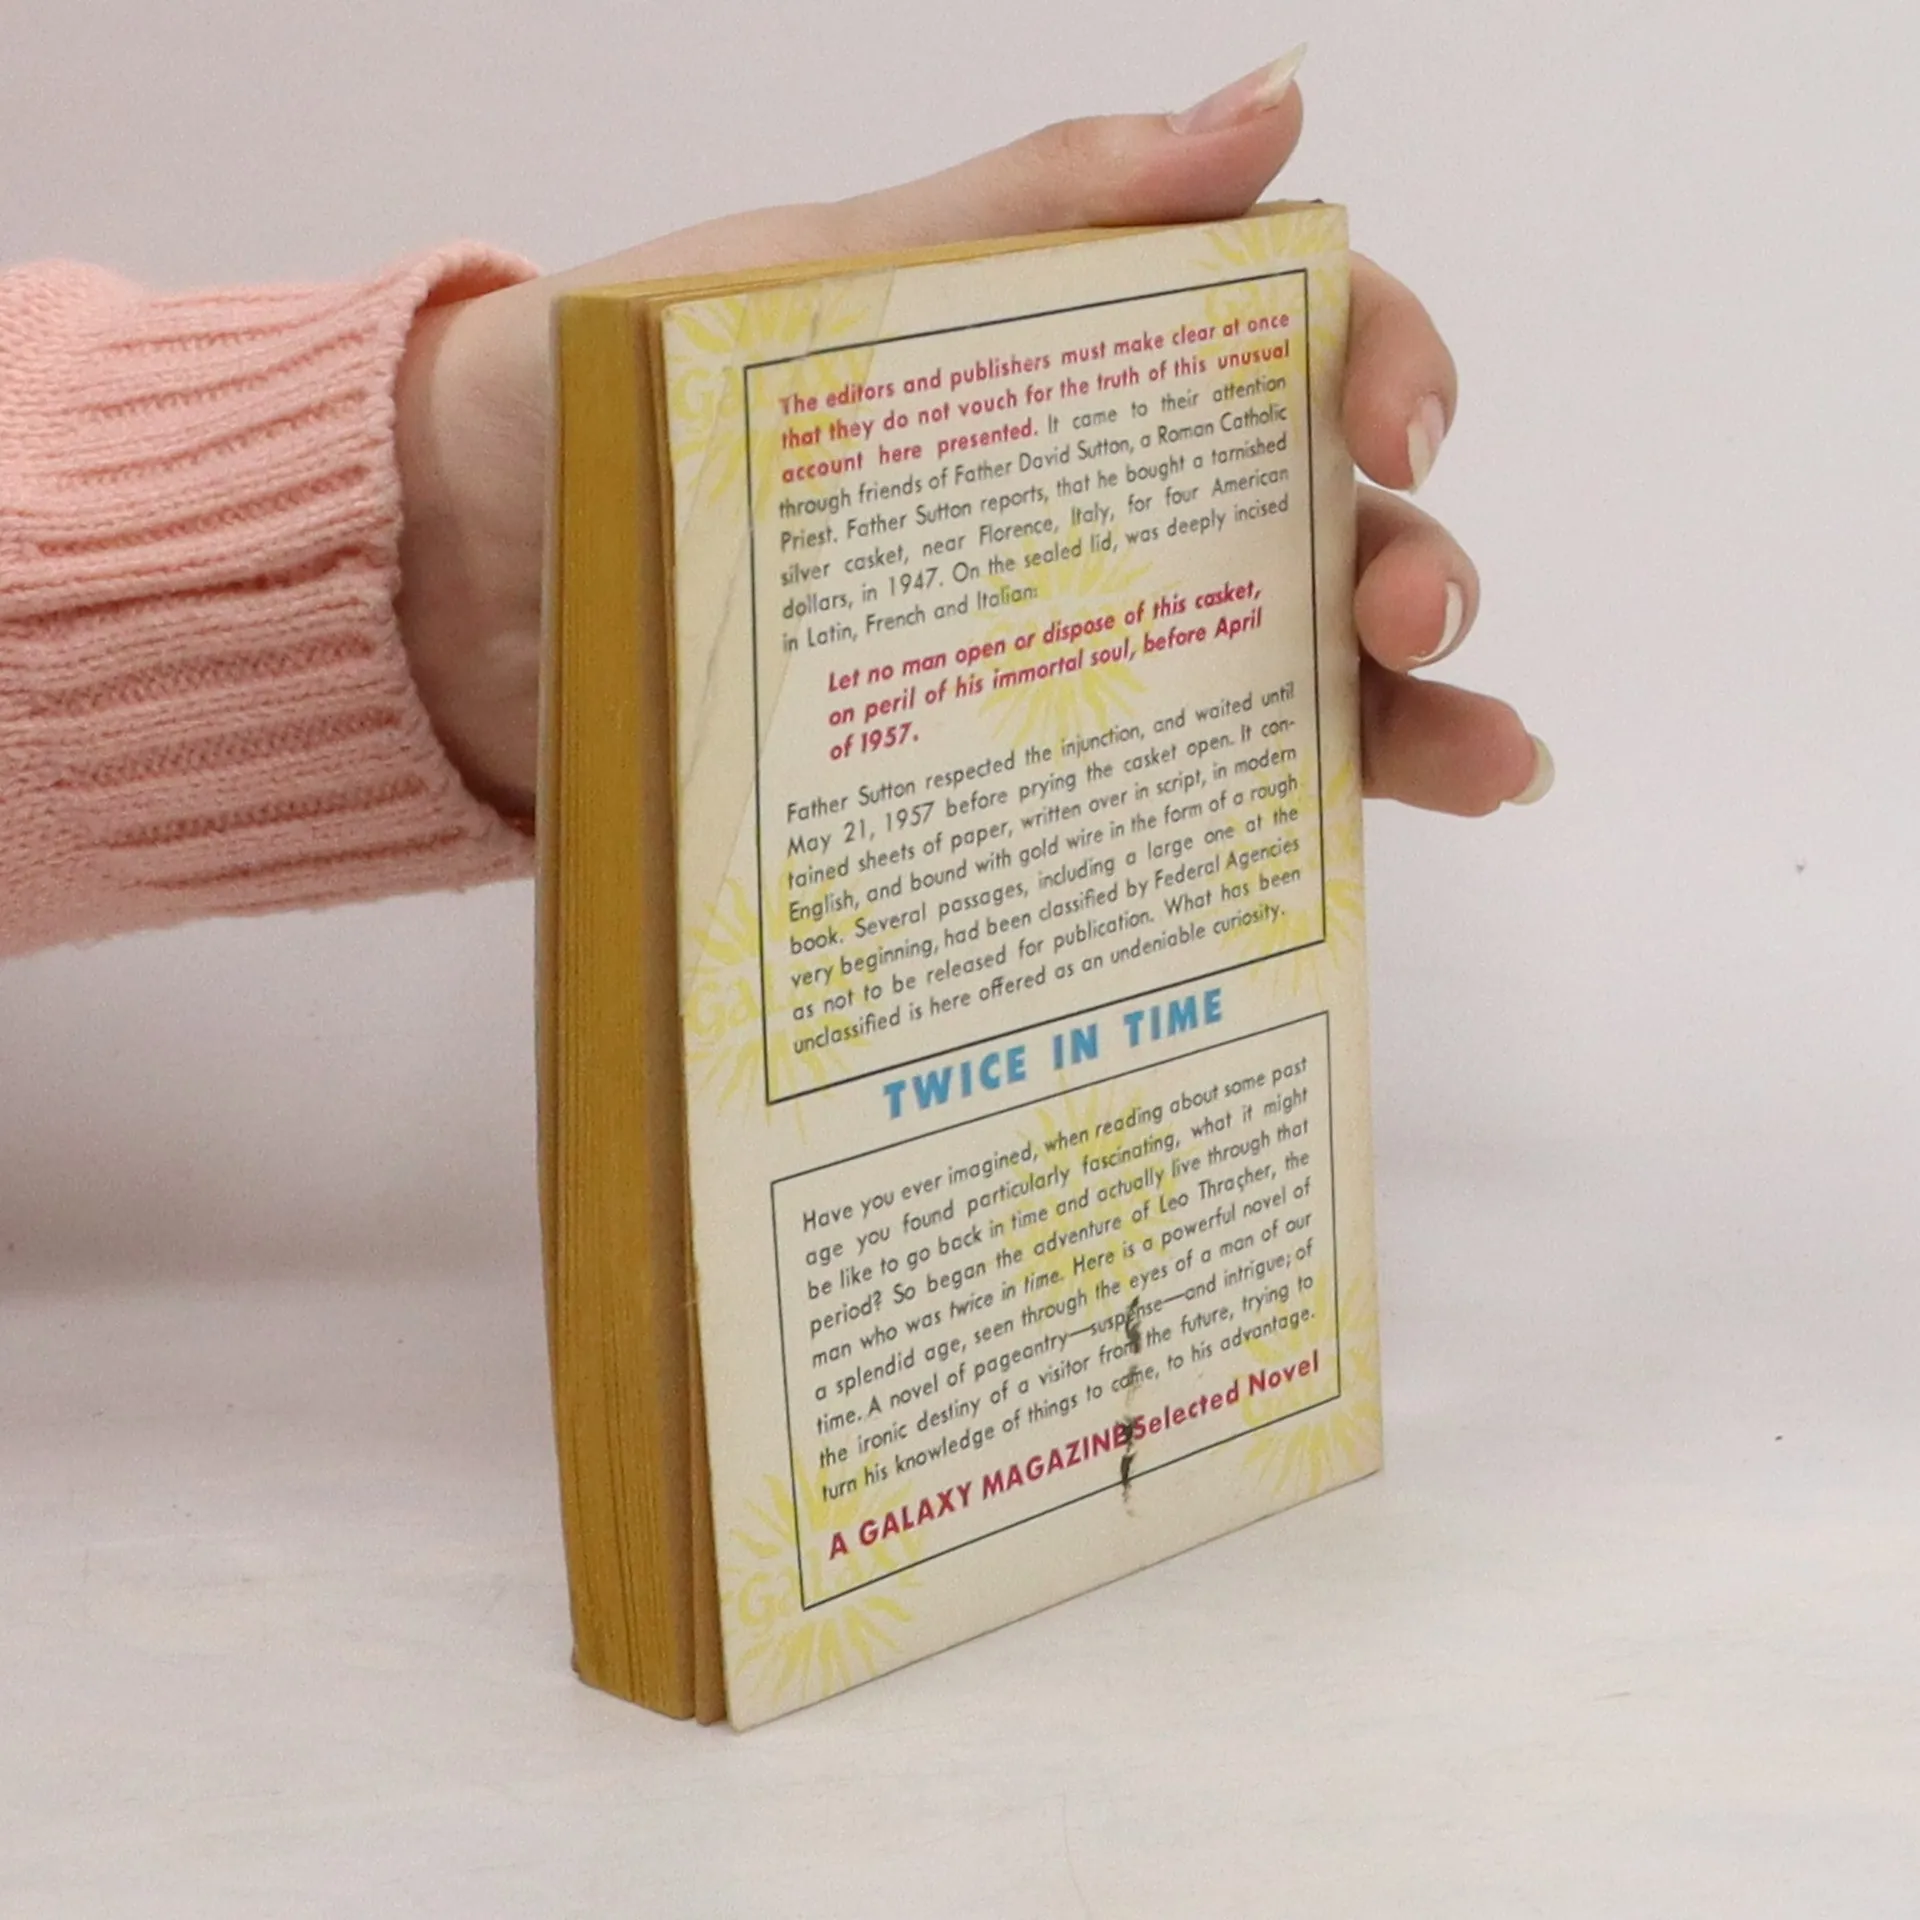 The editors and publishers must make clear at once
that they do not vouch for the truth of this unusual
account here presented. It came to their attention
through friends of Father David Sutton, a Roman Catholic
Priest. Father Sutton reports, that he bought a tarnished
silver casket, near Florence, Italy, for four American
dollars, in 1947. On the sealed lid, was deeply incised
in Latin, French and Italian:
Let no man open or dispose of this casket,
on peril of his immortal soul, before April
of 1957.
Father Sutton respected the injunction, and waited until
May 21, 1957 before prying the casket open. It con-
tained sheets of paper, written over in script, in modern
English, and bound with gold wire in the form of a rough
book. Several passages, including a large one at the
very beginning, had been classified by Federal Agencies
as not to be released for publication. What has been
unclassified is here offered as an undeniable curiosity.
TWICE IN TIME
Have you ever imagined, when reading about some past
age you found particularly fascinating, what it might
be like to go back in time and actually live through that
period? So began the adventure of Leo Thracher, the
man who was twice in time. Here is a powerful novel of
a splendid age, seen through the eyes of a man of our
time. A novel of pageantry—suspense—and intrigue; of
the ironic destiny of a visitor from the future, trying to
turn his knowledge of things to come, to his advantage.
A GALAXY MAGAZINE Selected Novel
GALAXY
GALAXY
GALAXY
GALAXY